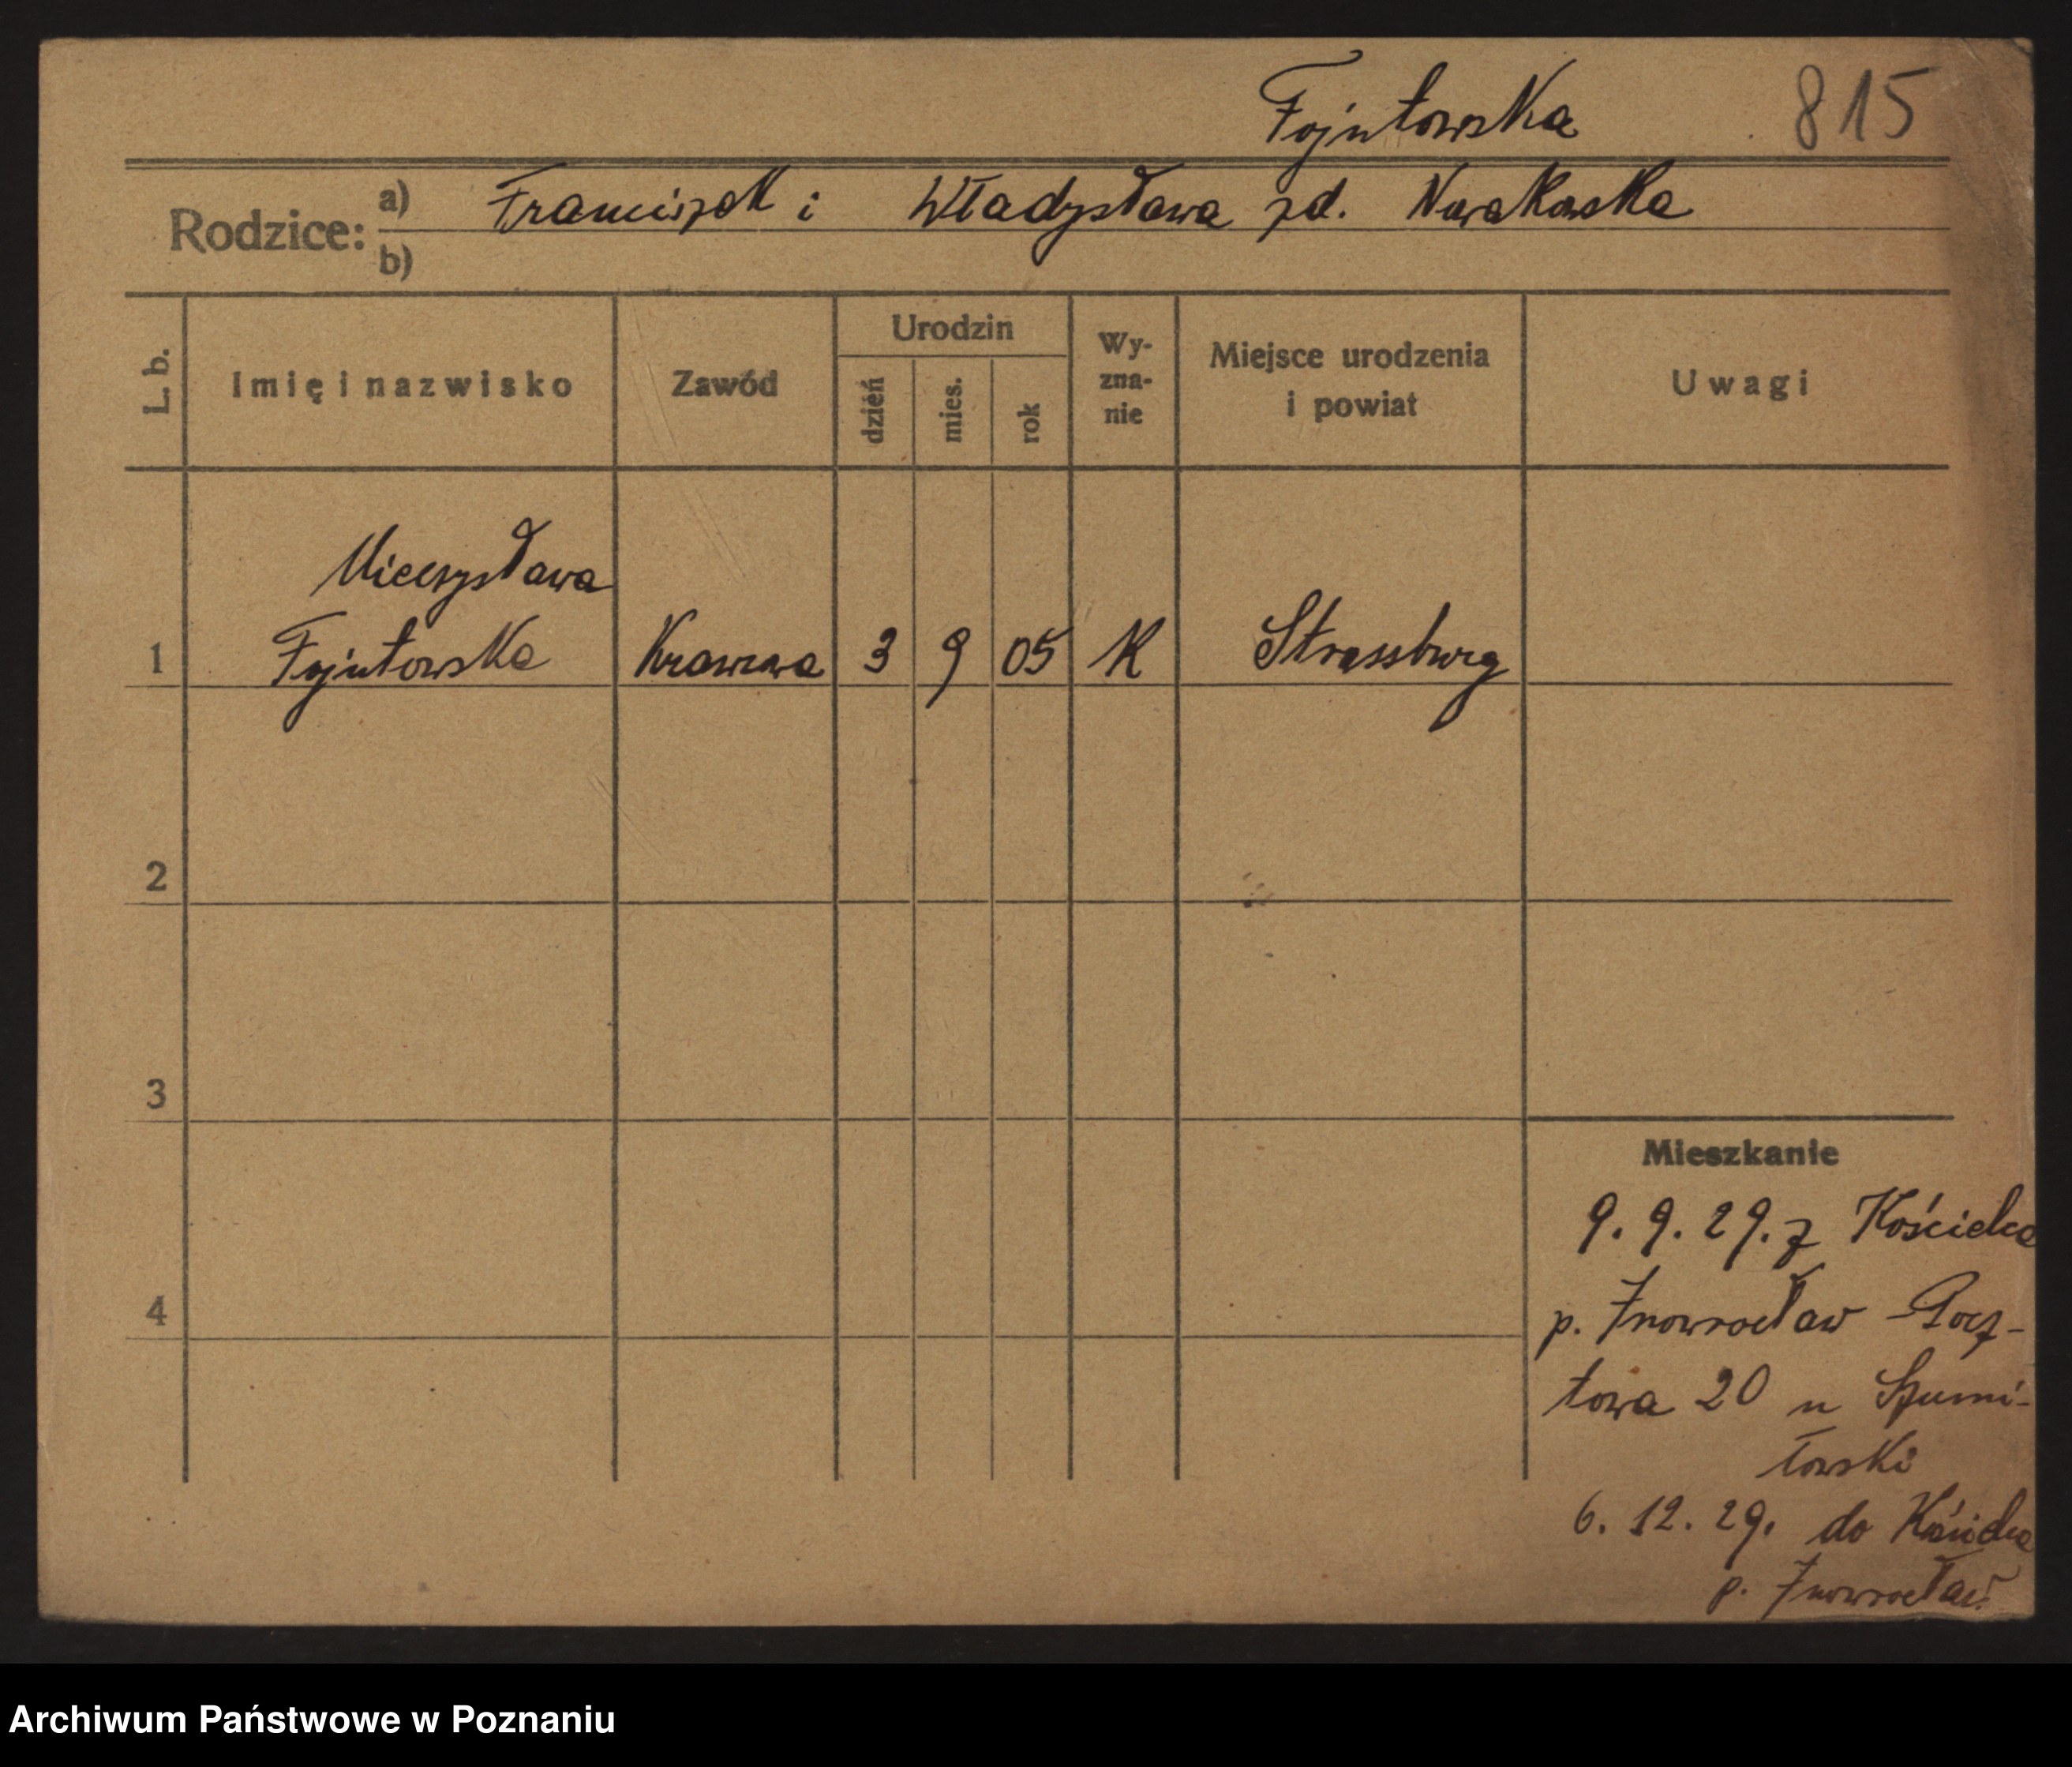 Fojutowska 815
Rodzice: a) Franciszek i Władysława zd. Nowakowska
b)
L. b. Imię i nazwisko Zawód Urodzin dzień mies. rok Wy-zna-nie Miejsce urodzenia i powiat Uwagi
Mieczysława
1 Fojutowska Krawcowa 3 9 05 K Strassburg
2
3
Mieszkanie
9. 9. 29. z Kościelca
4
p. Inowrocław Pocz-
towa 20 u Szumi-
łowski
6. 12. 29. do Kościelca
p. Inowrocław
Archiwum Państwowe w Poznaniu